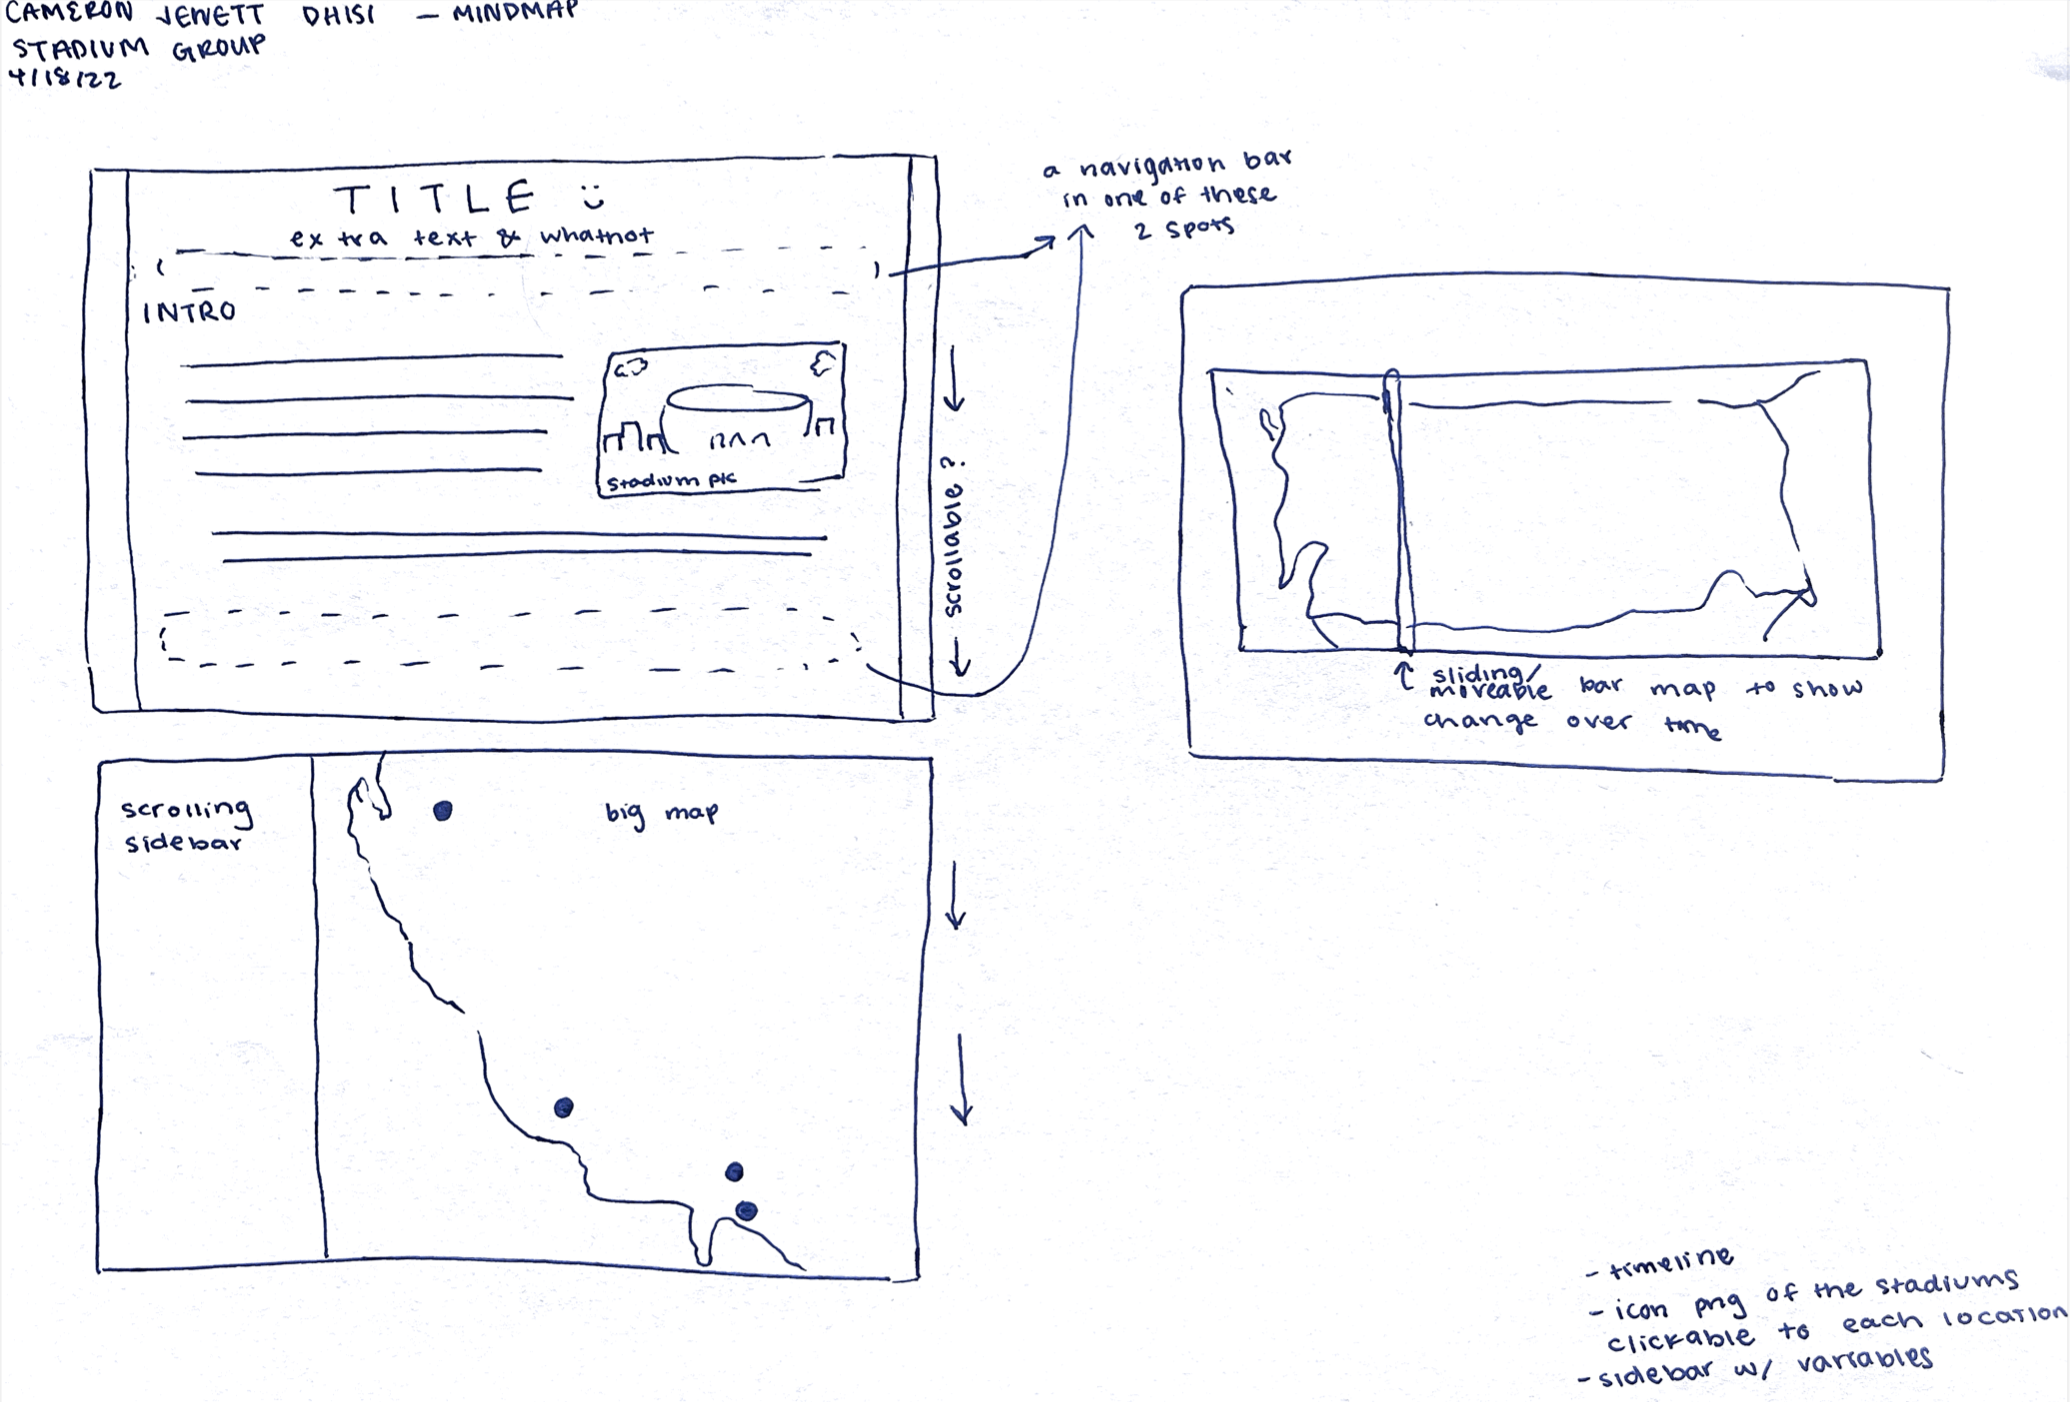 CAMERON JEWETT DHISI - MINDMAP
STADIUM GROUP
4/18/22
TITLE :)
extra text & whatnot
INTRO
stadium pic
a navigation bar
in one of these
2 spots
scrollable?
sliding/
moveable bar map to show
change over time
scrolling
sidebar
big map
- timeline
- icon png of the stadiums
clickable to each location
- sidebar w/ variables